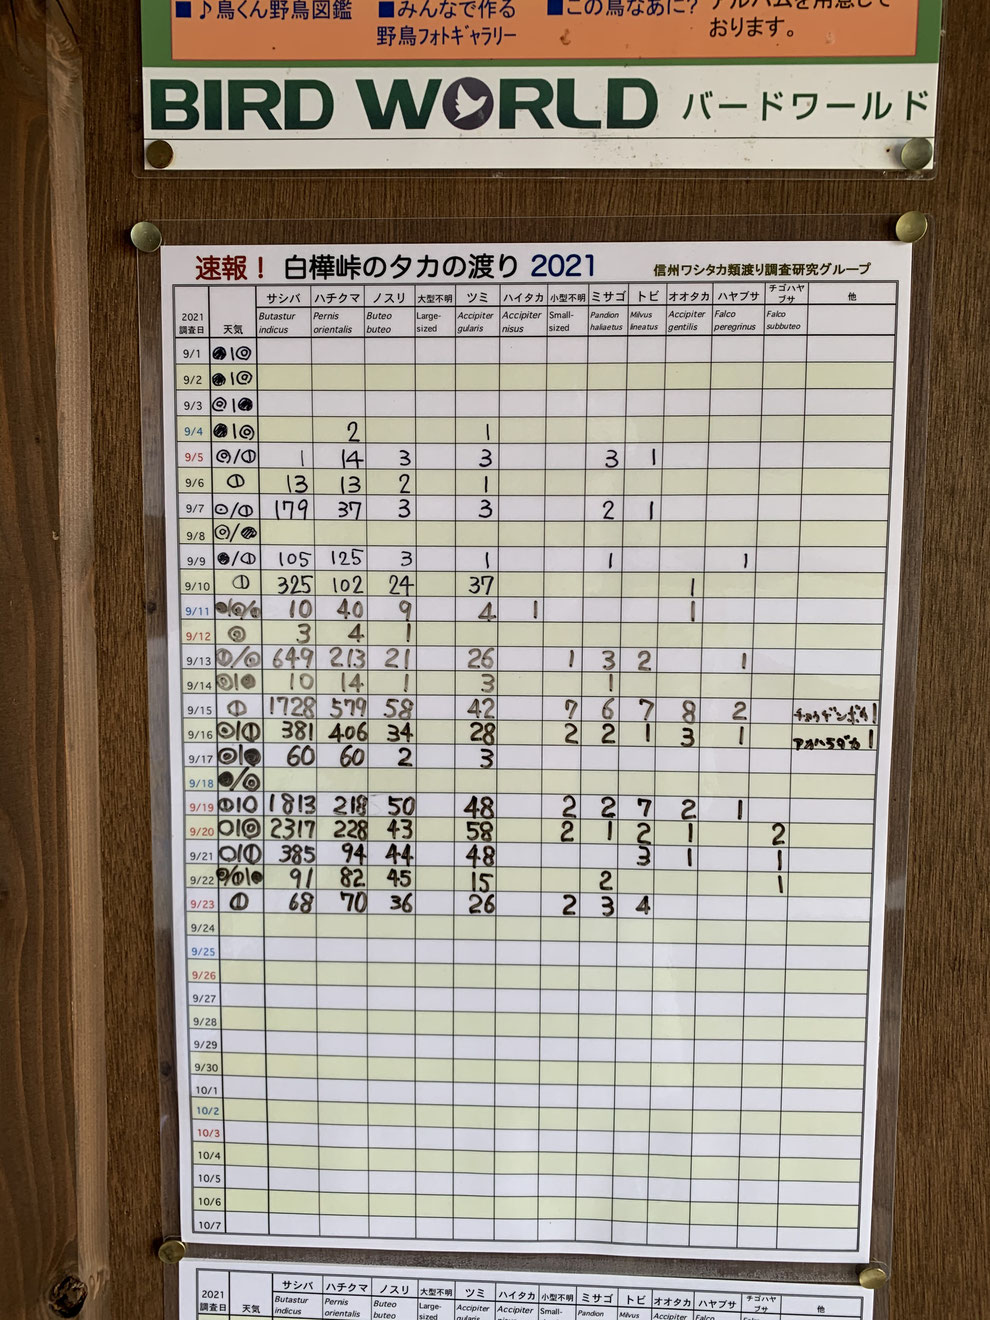 ■♪鳥くん野鳥図鑑 ■みんなで作る ■この鳥なあに?
野鳥フォトギャラリー おります。
BIRD WORLD バードワールド
速報! 白樺峠のタカの渡り 2021 信州ワシタカ類渡り調査研究グループ
2021 調査日 天気 サシバ ハチクマ ノスリ 大型不明 ツミ ハイタカ 小型不明 ミサゴ トビ オオタカ ハヤブサ チゴハヤブサ 他
Butastur indicus Pernis orientalis Buteo buteo Large-sized Accipiter gularis Accipiter nisus Small-sized Pandion haliaetus Milvus lineatus Accipiter gentilis Falco peregrinus Falco subbuteo
9/1 ●|◎
9/2 ●|◎
9/3 ◎|●
9/4 ●|◎ 2 1
9/5 ◎/⦶ 1 14 3 3 3 1
9/6 ⦶ 13 13 2 1
9/7 ⊙/⦶ 179 37 3 3 2 1
9/8 ◎/●
9/9 ●/⦶ 105 125 3 1 1 1
9/10 ⦶ 325 102 24 37 1
9/11 10 40 9 4 1 1
9/12 ◎ 3 4 1
9/13 ⦶/◎ 649 213 21 26 1 3 2 1
9/14 ◎|● 10 14 1 3 1
9/15 ⦶ 1728 579 58 42 7 6 7 8 2 チョウゲンボウ1
9/16 ◎|⦶ 381 406 34 28 2 2 1 3 1 アカハラダカ1
9/17 ◎|● 60 60 2 3
9/18 ●/◎
9/19 ⦶|○ 1813 218 50 48 2 2 7 2 1
9/20 ○|◎ 2317 228 43 58 2 1 2 1 2
9/21 ○|⦶ 385 94 44 48 3 1 1
9/22 91 82 45 15 2 1
9/23 ⦶ 68 70 36 26 2 3 4
9/24
9/25
9/26
9/27
9/28
9/29
9/30
10/1
10/2
10/3
10/4
10/5
10/6
10/7
2021 調査日 天気 サシバ ハチクマ ノスリ 大型不明 ツミ ハイタカ 小型不明 ミサゴ トビ オオタカ ハヤブサ チゴハヤブサ 他
Butastur indicus Pernis orientalis Buteo buteo Large-sized Accipiter gularis Accipiter Small- Pandion Milvus Accipiter Falco Falco